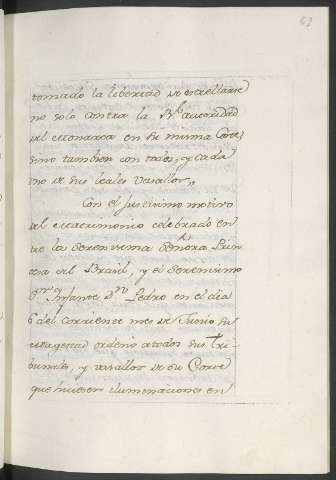 tomado la libertad de estrellarse
no solo contra la Rl. autoridad
del Monarca en su misma Corte,
sino tambien con todos, y cada
uno de sus leales vasallos„
Con el justissimo motivo
del Matrimonio celebrado en
tre la Serenissima Señora Prin
cesa del Brasil, y el Serenissimo
Sor. Infante Dn. Pedro en el dia
6 del corriente mes de Junio su
Magestad ordenó a todos sus Tri
bunales, y vasallos de su Corte
que hiciesen iluminaciones en